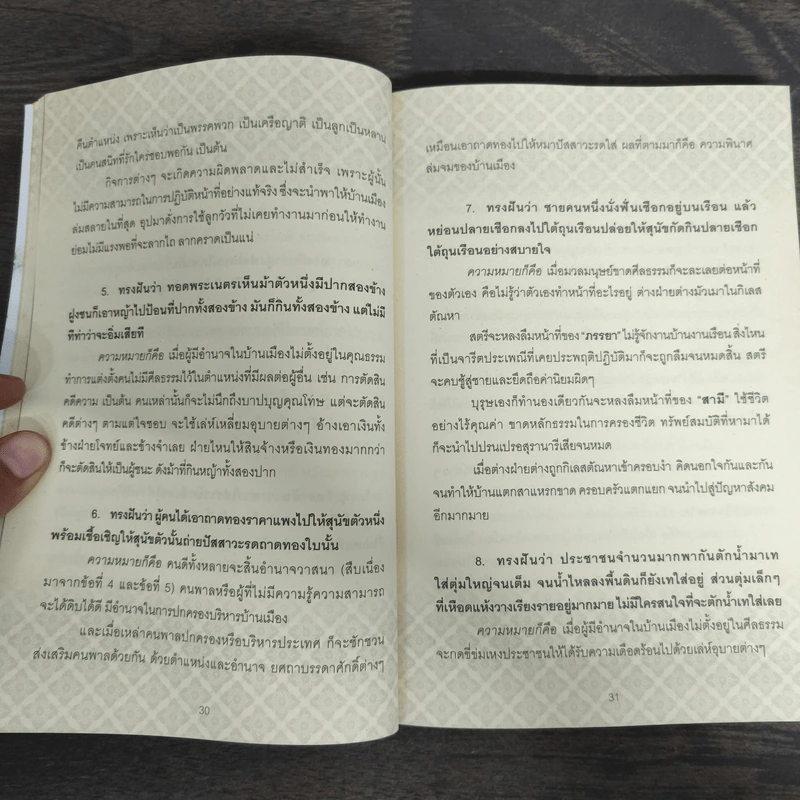 คืนตำแหน่ง เพราะเห็นว่าเป็นพรรคพวก เป็นเครือญาติ เป็นลูกเป็นหลาน
เป็นคนสนิทที่รักใคร่ชอบพอกัน เป็นต้น
กิจการต่างๆ จะเกิดความผิดพลาดและไม่สำเร็จ เพราะผู้นั้น
ไม่มีความสามารถในการปฏิบัติหน้าที่อย่างแท้จริง ซึ่งจะนำพาให้บ้านเมือง
ล่มสลายในที่สุด อุปมาดั่งการใช้ลูกวัวที่ไม่เคยทำงานมาก่อนให้ทำงาน
ย่อมไม่มีแรงพอที่จะลากไถ ลากคราดเป็นแน่
5. ทรงฝันว่า ทอดพระเนตรเห็นม้าตัวหนึ่งมีปากสองข้าง
ฝูงชนก็เอาหญ้าไปป้อนที่ปากทั้งสองข้าง มันก็กินทั้งสองข้าง แต่ไม่มี
ทีท่าว่าจะอิ่มเสียที
ความหมายก็คือ เมื่อผู้มีอำนาจในบ้านเมืองไม่ตั้งอยู่ในคุณธรรม
ทำการแต่งตั้งคนไม่มีศีลธรรมไว้ในตำแหน่งที่มีผลต่อผู้อื่น เช่น การตัดสิน
คดีความ เป็นต้น คนเหล่านั้นก็จะไม่นึกถึงบาปบุญคุณโทษ แต่จะตัดสิน
คดีต่างๆ ตามแต่ใจชอบ จะใช้เล่ห์เหลี่ยมอุบายต่างๆ อ้างเอาเงินทั้ง
ข้างฝ่ายโจทย์และข้างจำเลย ฝ่ายไหนให้สินจ้างหรือเงินทองมากกว่า
ก็จะตัดสินให้เป็นผู้ชนะ ดังม้าที่กินหญ้าทั้งสองปาก
6. ทรงฝันว่า ผู้คนได้เอาถาดทองราคาแพงไปให้สุนัขตัวหนึ่ง
พร้อมเชื้อเชิญให้สุนัขตัวนั้นถ่ายปัสสาวะรดถาดทองใบนั้น
ความหมายก็คือ คนดีทั้งหลายจะสิ้นอำนาจวาสนา (สืบเนื่อง
มาจากข้อที่ 4 และข้อที่ 5) คนพาลหรือผู้ที่ไม่มีความรู้ความสามารถ
จะได้ดิบได้ดี มีอำนาจในการปกครองบริหารบ้านเมือง
และเมื่อเหล่าคนพาลปกครองหรือบริหารประเทศ ก็จะชักชวน
ส่งเสริมคนพาลด้วยกัน ด้วยตำแหน่งและอำนาจ ยศถาบรรดาศักดิ์ต่างๆ
30
เหมือนเอาถาดทองไปให้หมาปัสสาวะรดใส่ ผลที่ตามมาก็คือ ความพินาศ
ล่มจมของบ้านเมือง
7. ทรงฝันว่า ชายคนหนึ่งนั่งฟั่นเชือกอยู่บนเรือน แล้ว
หย่อนปลายเชือกลงไปใต้ถุนเรือนปล่อยให้สุนัขกัดกินปลายเชือก
ใต้ถุนเรือนอย่างสบายใจ
ความหมายก็คือ เมื่อมวลมนุษย์ขาดศีลธรรมก็จะละเลยต่อหน้าที่
ของตัวเอง คือไม่รู้ว่าตัวเองทำหน้าที่อะไรอยู่ ต่างฝ่ายต่างมัวเมาในกิเลส
ตัณหา
สตรีจะหลงลืมหน้าที่ของ "ภรรยา" ไม่รู้จักงานบ้านงานเรือน สิ่งไหน
ที่เป็นจารีตประเพณีที่เคยประพฤติปฏิบัติมาก็จะถูกลืมจนหมดสิ้น สตรี
จะคบชู้สู่ชายและยึดถือค่านิยมผิดๆ
บุรุษเองก็ทำนองเดียวกันจะหลงลืมหน้าที่ของ "สามี" ใช้ชีวิต
อย่างไร้คุณค่า ขาดหลักธรรมในการครองชีวิต ทรัพย์สมบัติที่หามาได้
ก็จะนำไปปรนเปรอสุรานารีเสียจนหมด
เมื่อต่างฝ่ายต่างถูกกิเลสตัณหาเข้าครอบงำ คิดนอกใจกันและกัน
จนทำให้บ้านแตกสาแหรกขาด ครอบครัวแตกแยก จนนำไปสู่ปัญหาสังคม
อีกมากมาย
8. ทรงฝันว่า ประชาชนจำนวนมากพากันตักน้ำมาเท
ใส่ตุ่มใหญ่จนเต็ม จนน้ำไหลลงพื้นดินก็ยังเทใส่อยู่ ส่วนตุ่มเล็กๆ
ที่เหือดแห้งวางเรียงรายอยู่มากมาย ไม่มีใครสนใจที่จะตักน้ำเทใส่เลย
ความหมายก็คือ เมื่อผู้มีอำนาจในบ้านเมืองไม่ตั้งอยู่ในศีลธรรม
จะกดขี่ข่มเหงประชาชนให้ได้รับความเดือดร้อนไปด้วยเล่ห์อุบายต่างๆ
31